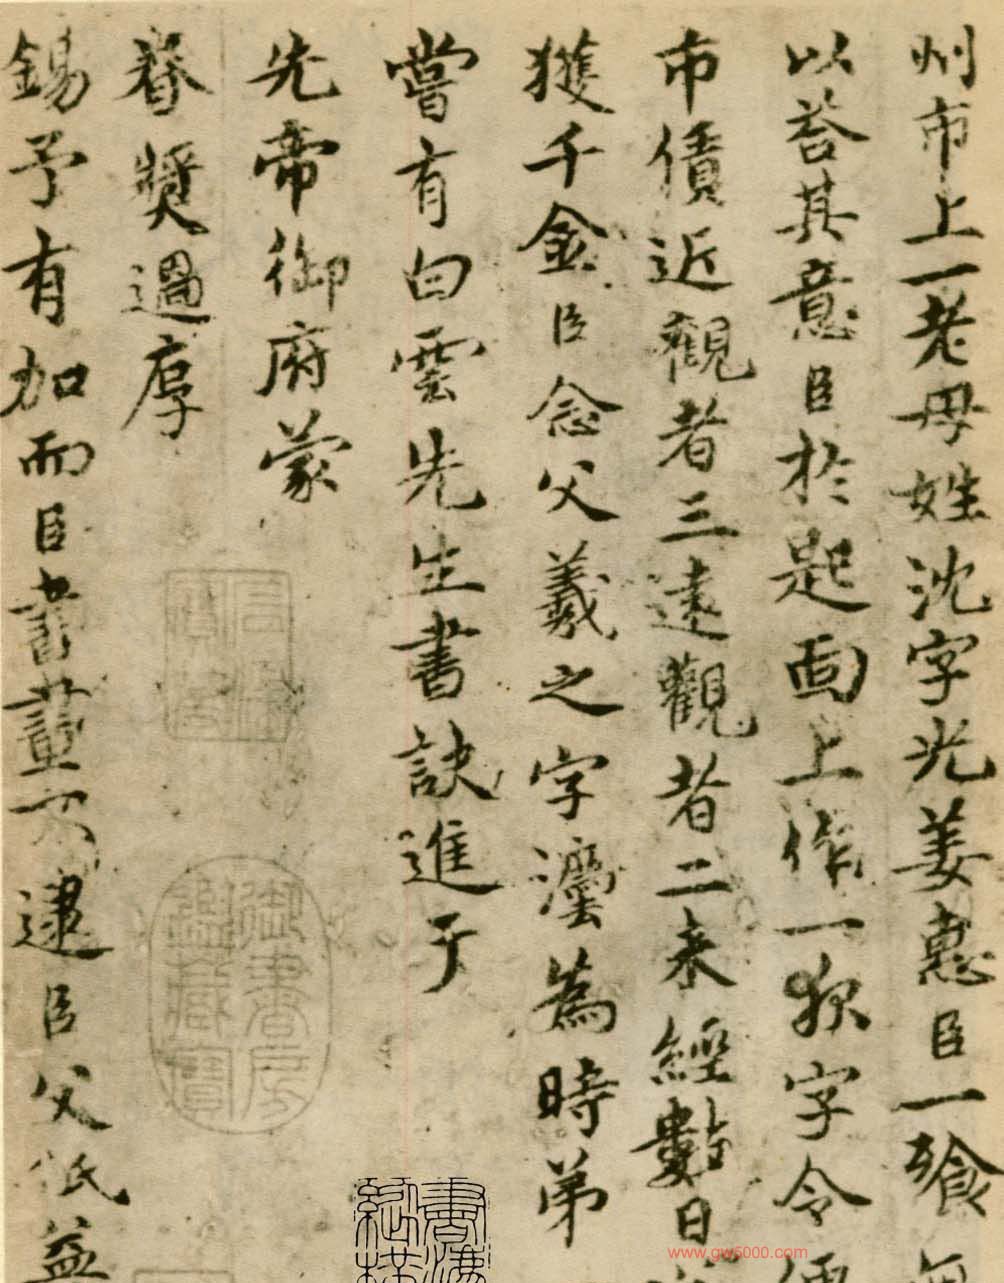 州市上一老母姓沈字光姜惠臣一飡
以荅其意臣於匙面上作一夜字令便
市債近觀者三遠觀者二未經數日
獲千金臣念父羲之字瀍為時第
嘗有白雲先生書訣進于
先帝御府蒙
眷獎過厚
錫予有加而臣書畫不逮臣父祇益
御書房鑑藏寶
www.gw5000.com